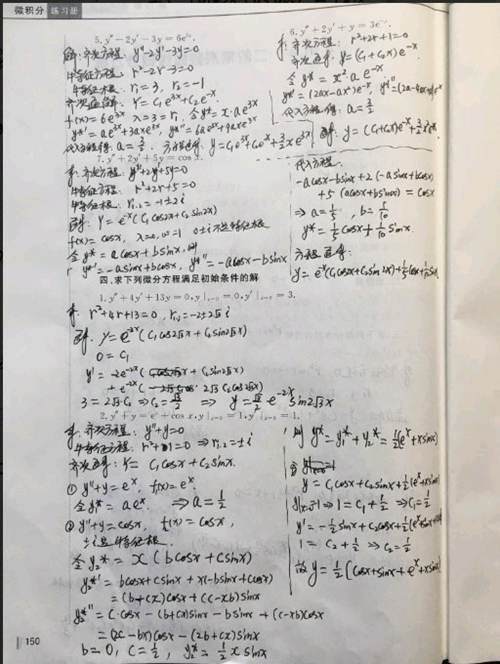 微积分 练习册
5. y″-2y′-3y=6e³ˣ.
解: 齐次方程: y″-2y′-3y=0
特征方程: r²-2r-3=0
特征根: r₁=3, r₂=-1
齐次通解: Y=C₁e³ˣ+C₂e⁻ˣ.
f(x)=6e³ˣ λ=3=r₁ 令y*=x·ae³ˣ
y*′=ae³ˣ+3axe³ˣ, y*″=6ae³ˣ+9axe³ˣ
代入方程得: a=3/2. 方程通解: y=C₁e³ˣ+C₂e⁻ˣ+3/2xe³ˣ
6. y″+2y′+y=3e⁻ˣ.
特征方程: r²+2r+1=0
齐次通解: Y=(C₁+C₂x)e⁻ˣ
令y*=x²·a e⁻ˣ
y*′=(2ax-ax²)e⁻ˣ, y*″=(2a-4ax+ax²)e⁻ˣ
代入方程得: a=3/2
通解: y=(C₁+C₂x)e⁻ˣ+3/2x²e⁻ˣ
7. y″+2y′+5y=cos x.
解: 齐次方程: y″+2y′+5y=0
特征方程: r²+2r+5=0
特征根: r₁,₂=-1±2i
通解: Y=e⁻ˣ(C₁cos2x+C₂sin2x)
f(x)=cosx, λ=0, ω=1 0±i不是特征根
令y*=acosx+bsinx, 则
y*′=-asinx+bcosx, y*″=-acosx-bsinx
代入方程:
-acosx-bsinx+2(-asinx+bcosx)
+5(acosx+bsinx)=cosx
⇒ a=1/5, b=1/10
y*=1/5cosx+1/10sinx.
方程通解:
y=e⁻ˣ(C₁cos2x+C₂sin2x)+1/5cosx+1/10sinx
四、求下列微分方程满足初始条件的解
1. y″+4y′+13y=0, y|ₓ₌₀=0, y′|ₓ₌₀=3.
解: r²+4r+13=0, r₁,₂=-2±2√3i
通解: y=e⁻²ˣ(C₁cos2√3x+C₂sin2√3x)
0=C₁
y′=-2e⁻²ˣ(C₁cos2√3x+C₂sin2√3x)
3=2√3·C₂ ⇒C₂=√3/2 ⇒ y=√3/2e⁻²ˣsin2√3x
2. y″+y=eˣ+cos x, y|ₓ₌₀=1, y′|ₓ₌₀=1.
解: 齐次方程: y″+y=0
特征方程: r²+1=0 ⇒r₁,₂=±i
齐次通解: Y=C₁cosx+C₂sinx.
① y″+y=eˣ, f(x)=eˣ
令y₁*=aeˣ. ⇒a=1/2
② y″+y=cosx, f(x)=cosx,
±i是特征根.
令y₂*=x(bcosx+csinx)
y₂*′=bcosx+csinx+x(-bsinx+ccosx)
=(b+cx)cosx+(c-xb)sinx
y₂*″=c·cosx-(b+cx)sinx-bsinx+(c-xb)cosx
=(2c-bx)cosx-(2b+cx)sinx
b=0, c=1/2, y₂*=1/2xsinx
则 y*=y₁*+y₂*=1/2(eˣ+xsinx)
y=C₁cosx+C₂sinx+1/2(eˣ+xsinx)
⇒1=C₁+1/2 ⇒C₁=1/2
1=C₂+1/2 ⇒C₂=1/2
故y=1/2[cosx+sinx+eˣ+xsinx]
150